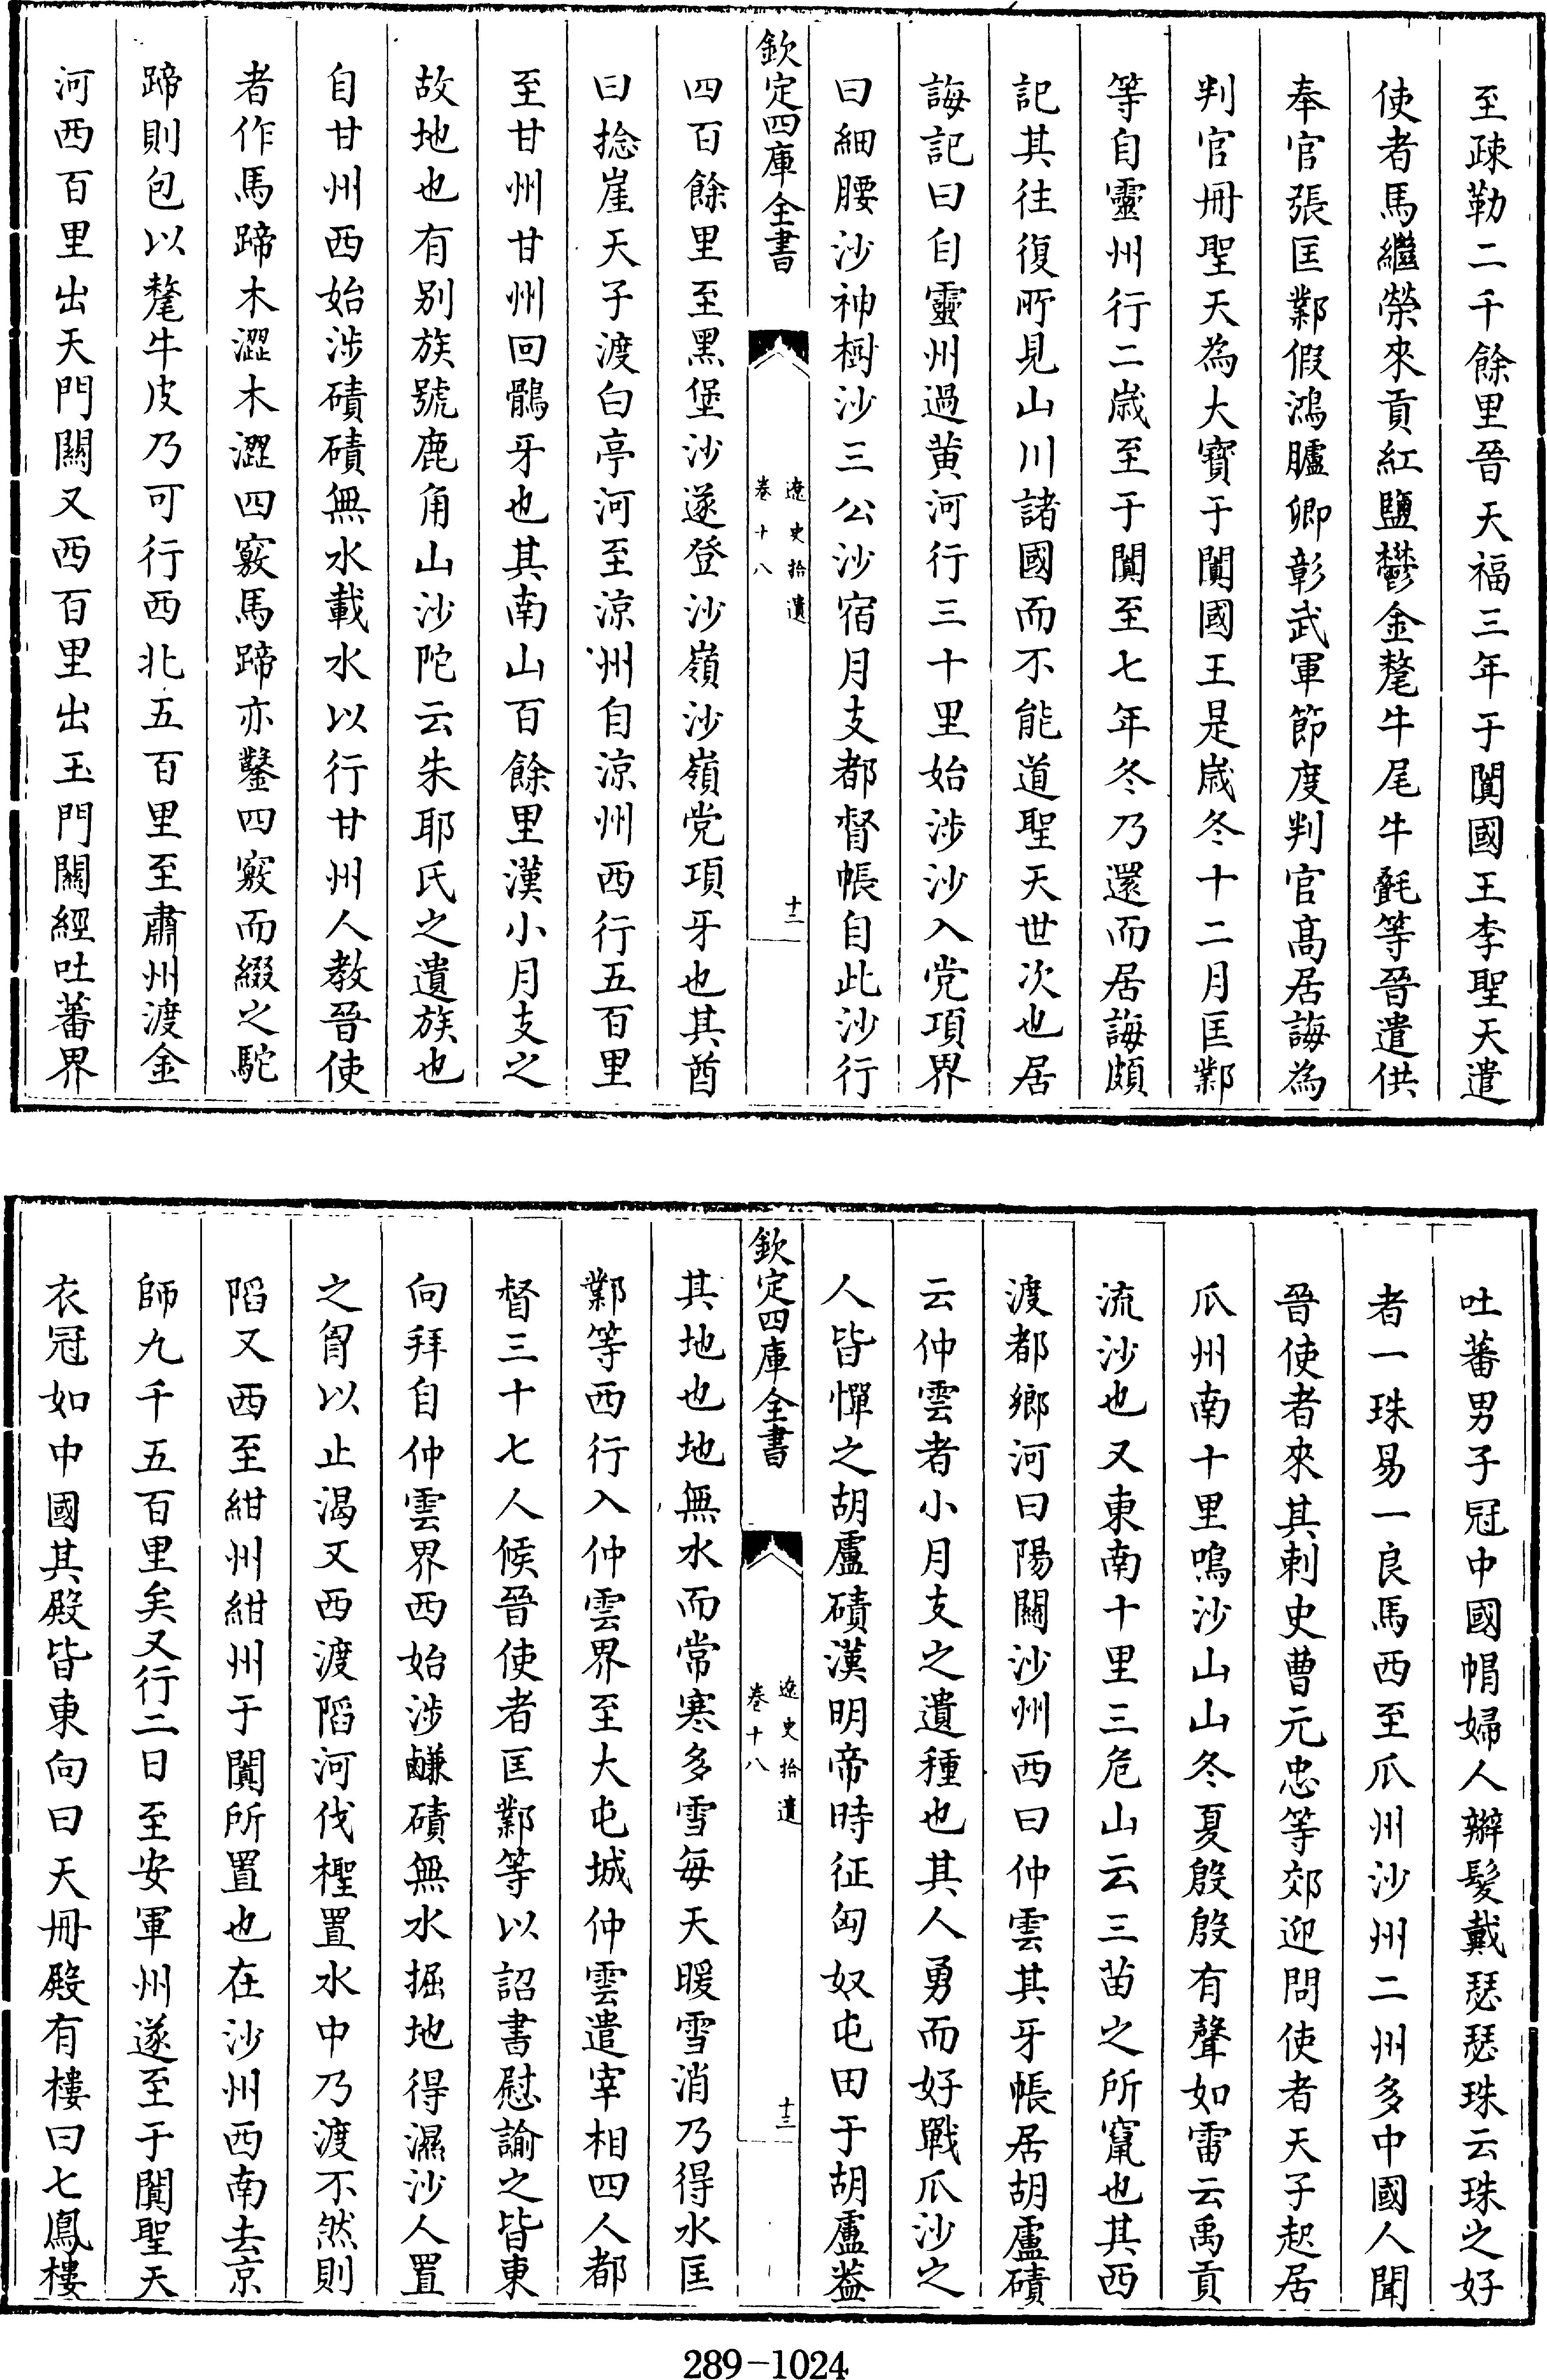 至疎勒二千餘里晉天福三年于闐國王李聖天遣
使者馬繼榮來貢紅鹽鬱金氂牛尾牛㲲等晉遣供
奉官張匡鄴假鴻臚卿彰武軍節度判官高居誨為
判官冊聖天為大寶于闐國王是嵗冬十二月匡鄴
等自靈州行二嵗至于闐至七年冬乃還而居誨頗
記其往復所見山川諸國而不能道聖天世次也居
誨記曰自靈州過黄河行三十里始涉沙入党項界
曰細腰沙神樹沙三公沙宿月支都督帳自此沙行
欽定四庫全書
遼史拾遺
卷十八
十二
四百餘里至黑堡沙遂登沙嶺沙嶺党項牙也其酋
曰捻崖天子渡白亭河至涼州自涼州西行五百里
至甘州甘州回鶻牙也其南山百餘里漢小月支之
故地也有别族號鹿角山沙陀云朱耶氏之遺族也
自甘州西始涉磧磧無水載水以行甘州人教晉使
者作馬蹄木澀木澀四竅馬蹄亦鑿四竅而綴之駝
蹄則包以氂牛皮乃可行西北五百里至肅州渡金
河西百里出天門關又西百里出玉門關經吐蕃界
吐蕃男子冠中國帽婦人辮髮戴瑟瑟珠云珠之好
者一珠易一良馬西至瓜州沙州二州多中國人聞
晉使者來其刺史曹元忠等郊迎問使者天子起居
瓜州南十里鳴沙山山冬夏殷殷有聲如雷云禹貢
流沙也又東南十里三危山云三苗之所竄也其西
渡都鄉河曰陽關沙州西曰仲雲其牙帳居胡盧磧
云仲雲者小月支之遺種也其人勇而好戰瓜沙之
人皆憚之胡盧磧漢明帝時征匈奴屯田于胡盧葢
欽定四庫全書
遼史拾遺
卷十八
十三
其地也地無水而常寒多雪每天暖雪消乃得水匡
鄴等西行入仲雲界至大屯城仲雲遣宰相四人都
督三十七人候晉使者匡鄴等以詔書慰諭之皆東
向拜自仲雲界西始涉鹻磧無水掘地得濕沙人置
之胷以止渴又西渡䧟河伐檉置水中乃渡不然則
䧟又西至紺州紺州于闐所置也在沙州西南去京
師九千五百里矣又行二日至安軍州遂至于闐聖天
衣冠如中國其殿皆東向曰天冊殿有樓曰七鳳樓
289-1024